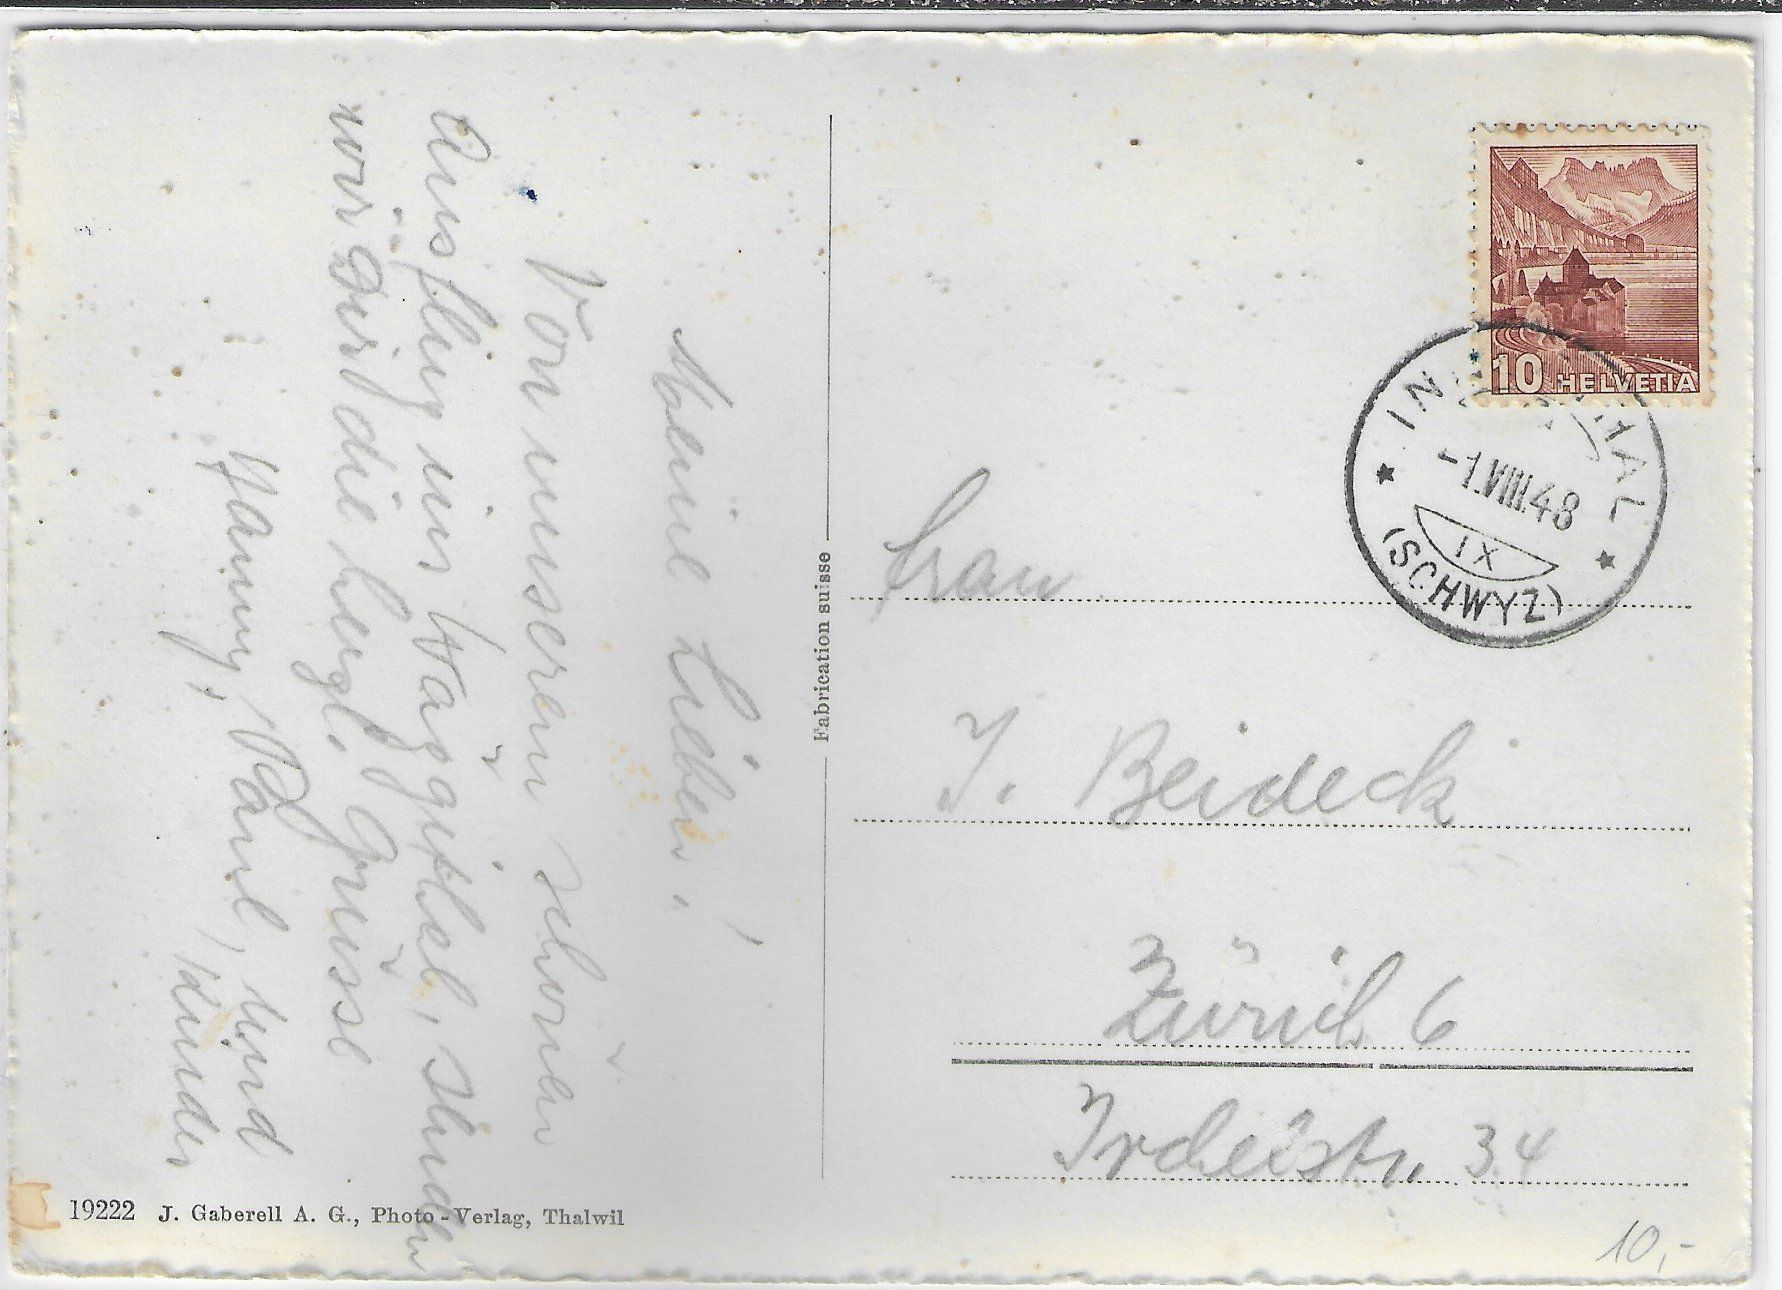 Meine Lieben!
Von unserem schönen
Ausflug ins Wäggithal, senden
wir Dir die herzl. Grüsse
Hanny, Paul, und
Kinder
Fabrication suisse
19222 J. Gaberell A. G., Photo-Verlag, Thalwil
10 HELVETIA
-1.VIII.48
IX
(SCHWYZ)
Frau
J. Beideck
Zürich 6
Irchelstr. 34
10,-